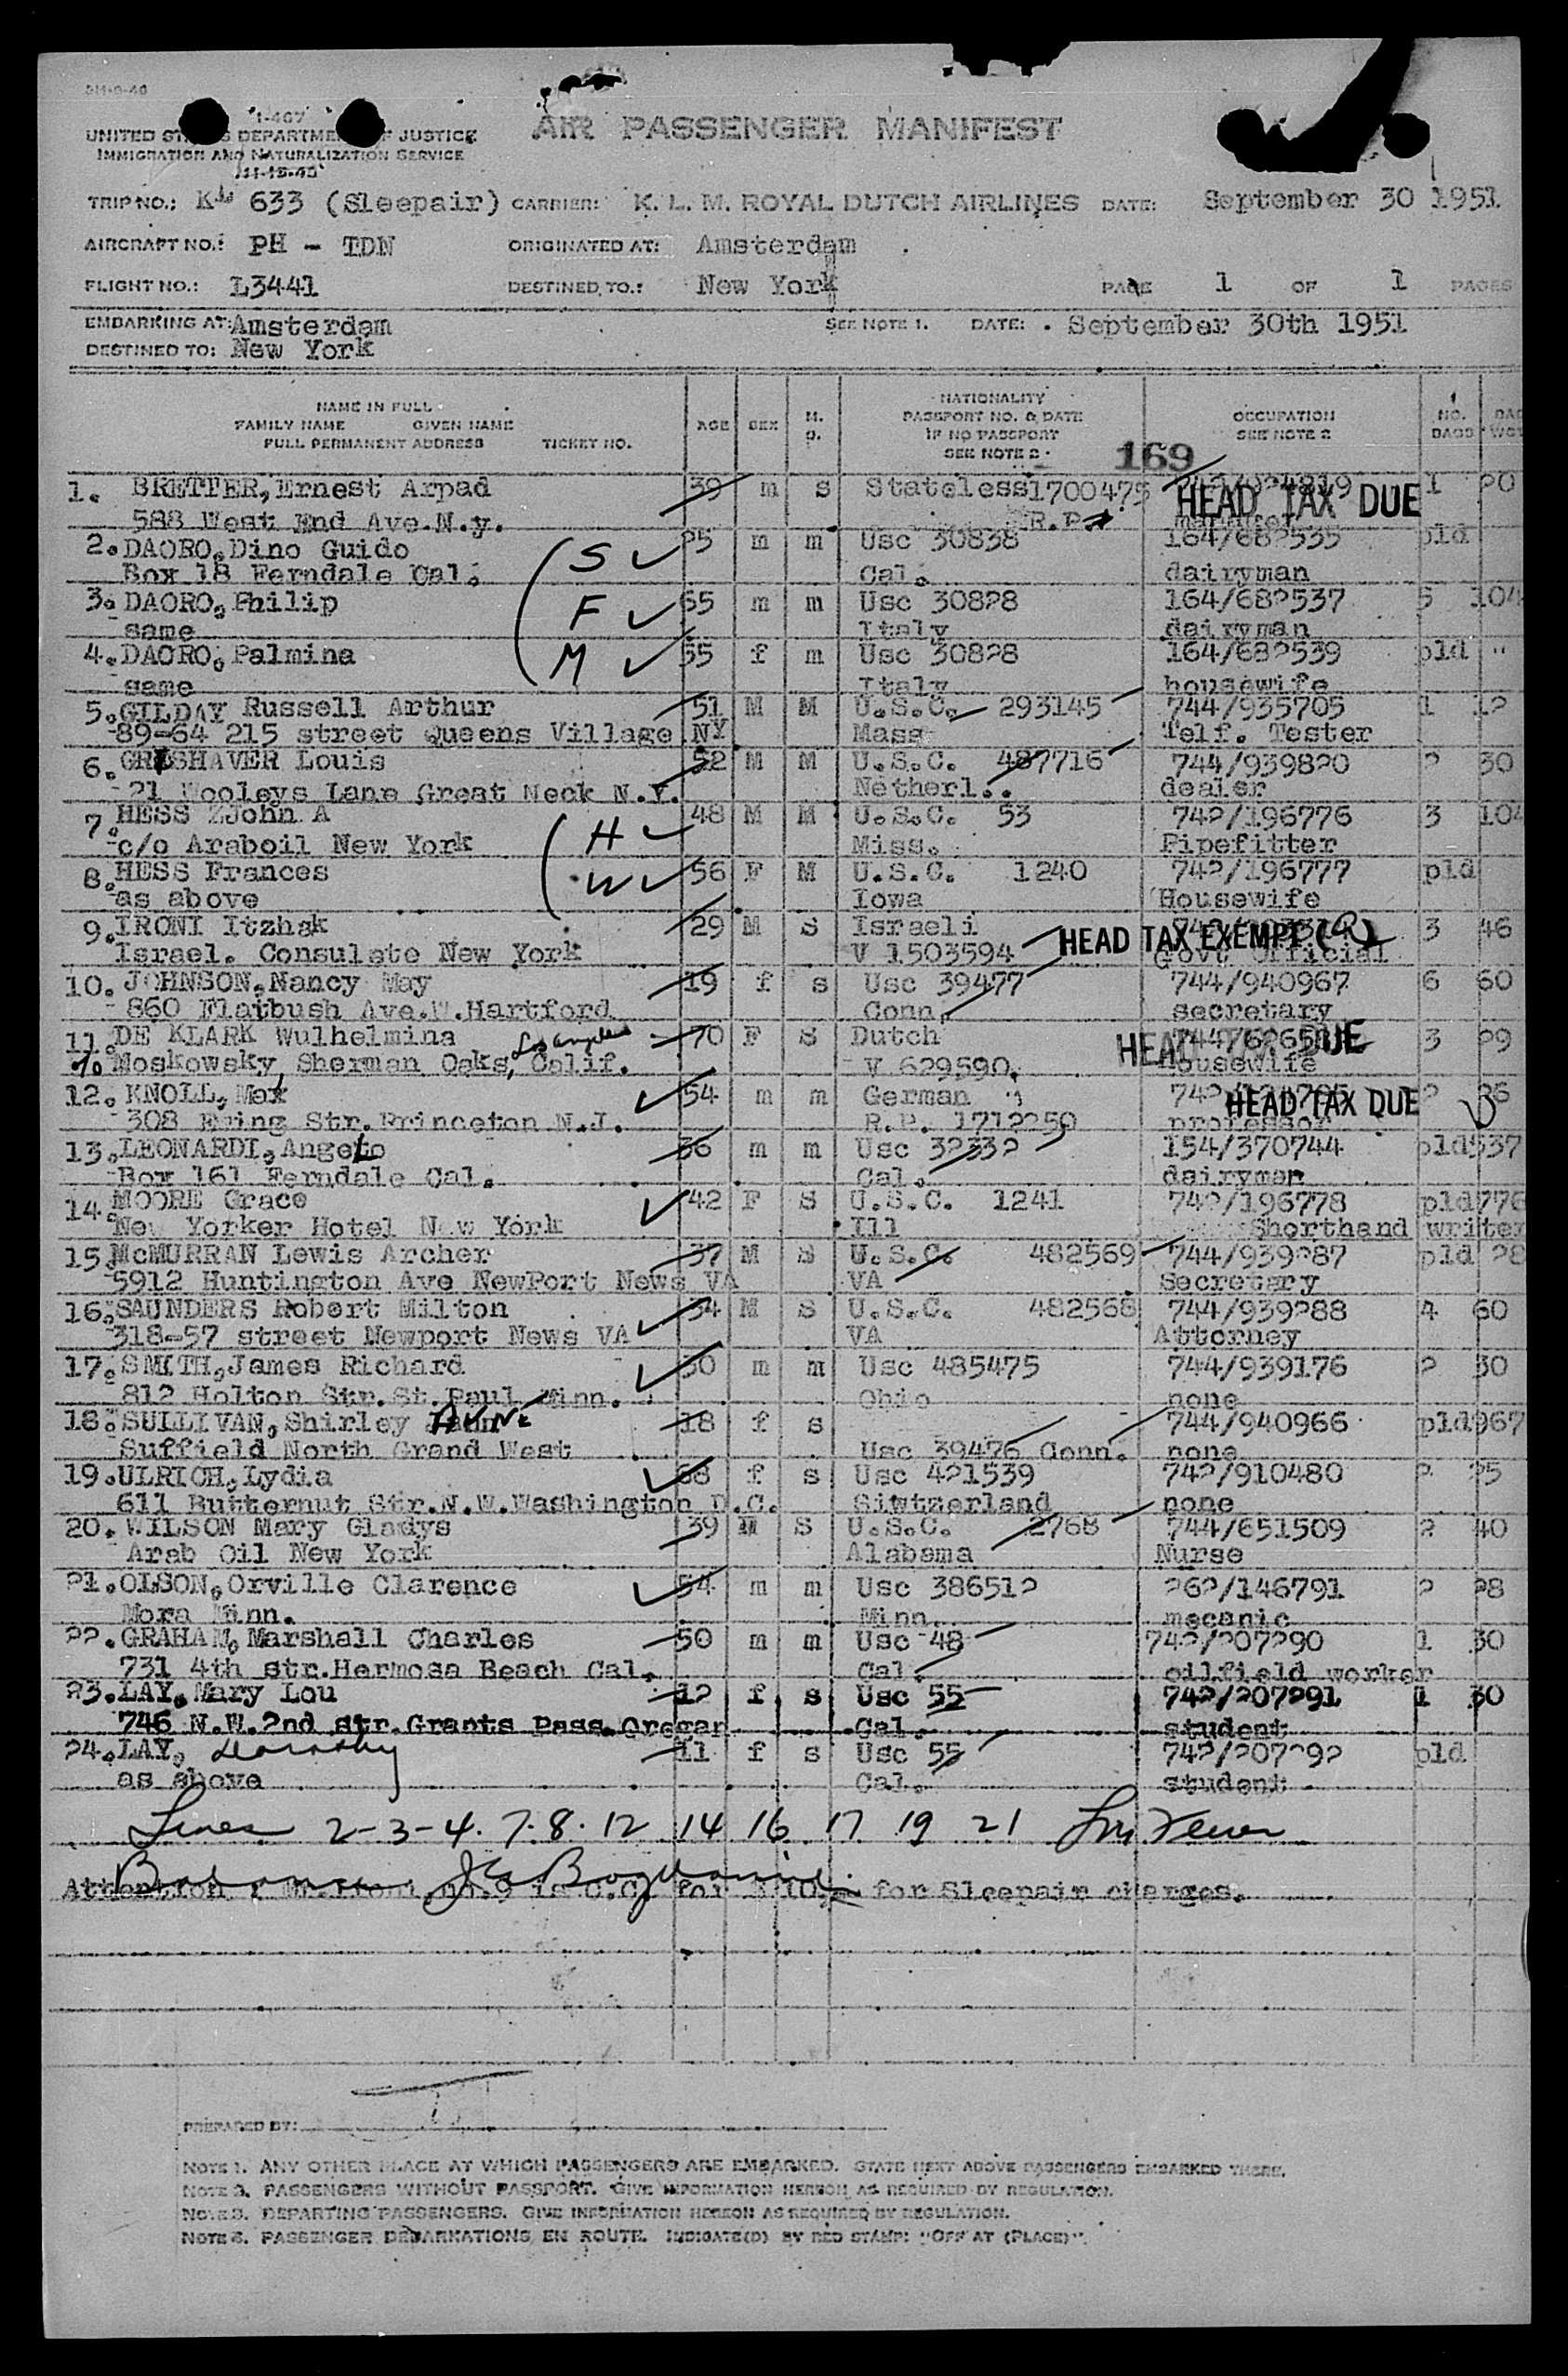 I-407
UNITED STATES DEPARTMENT OF JUSTICE
IMMIGRATION AND NATURALIZATION SERVICE
11-15-45
AIR PASSENGER MANIFEST
TRIP NO.: KL 633 (Sleepair) CARRIER: K. L. M. ROYAL DUTCH AIRLINES DATE: September 30 1951
AIRCRAFT NO.: PH - TDN ORIGINATED AT: Amsterdam
FLIGHT NO.: L3441 DESTINED TO.: New York PAGE 1 OF 1 PAGES
EMBARKING AT: Amsterdam SEE NOTE 1. DATE: September 30th 1951
DESTINED TO: New York
NAME IN FULL
FAMILY NAME GIVEN NAME
FULL PERMANENT ADDRESS TICKET NO.
AGE SEX M. S.
NATIONALITY
PASSPORT NO. & DATE
IF NO PASSPORT
SEE NOTE 2
OCCUPATION
SEE NOTE 2
NO. BAGS
169
1. BRETTER, Ernest Arpad 39 m s Stateless 1700475 HEAD TAX DUE 1 20
588 West End Ave.N.y. R.P.
2. DAORO, Dino Guido S 25 m m Usc 30838 164/682535 pld
Box 18 Ferndale Cal. Cal. dairyman
3. DAORO, Philip F 65 m m Usc 30828 164/682537 5 104
same Italy dairyman
4. DAORO, Palmina M 55 f m Usc 30828 164/682539 pld "
same Italy housewife
5. GILDAY Russell Arthur 51 M M U.S.C. 293145 744/935705 1 12
89-64 215 street Queens Village NY Mass Telf. Tester
6. SHAVER Louis 52 M M U.S.C. 487716 744/939820 2 30
21 Wooleys Lane Great Neck N.Y. Netherl.. dealer
7. HESS John A H 48 M M U.S.C. 53 742/196776 3 104
c/o Araboil New York Miss. Pipefitter
8. HESS Frances W 56 F M U.S.C. 1240 742/196777 pld
as above Iowa Housewife
9. IRONI Itzhak 29 M S Israeli HEAD TAX EXEMPT 3 46
Israel. Consulate New York V 1503594 Govt Official
10. JOHNSON, Nancy May 19 f s Usc 39477 744/940967 6 60
860 Flatbush Ave.W.Hartford Conn. secretary
11. DE KLARK Wulhelmina Los Angeles 70 F S Dutch HEAD DUE 3 29
% Moskowsky, Sherman Oaks, Calif. V 629590. Housewife
12. KNOLL, Max 54 m m German HEAD TAX DUE 2 26
308 Ewing Str. Princeton N.J. R.P. 1712250 professor
13. LEONARDI, Angelo 36 m m Usc 32332 154/370744 pld 537
Box 161 Ferndale Cal. Cal. dairyman
14. MOORE Grace 42 F S U.S.C. 1241 742/196778 pld 776
New Yorker Hotel New York Ill Shorthand writer
15. McMURRAN Lewis Archer 37 M S U.S.C. 482569 744/939287 pld 28
5912 Huntington Ave NewPort News VA VA Secretary
16. SAUNDERS Robert Milton 34 M S U.S.C. 482568 744/939288 4 60
318-57 street Newport News VA VA Attorney
17. SMITH, James Richard 30 m m Usc 485475 744/939176 2 30
812 Holton Str. St. Paul Minn. Ohio none
18. SULLIVAN, Shirley ANNE 18 f s 744/940966 pld 967
Suffield North Grand West Usc 39476 Conn. none
19. ULRICH, Lydia 68 f s Usc 421539 742/910480 2 25
611 Butternut Str.N.W.Washington D.C. Siwtzerland none
20. WILSON Mary Gladys 39 M S U.S.C. 2768 744/651509 2 40
Arab Oil New York Alabama Nurse
21. OLSON, Orville Clarence 54 m m Usc 386512 262/146791 2 28
Mora Minn. Minn. mecanic
22. GRAHAM, Marshall Charles 50 m m Usc 48 742/207290 1 30
731 4th str.Hermosa Beach Cal. Cal. oilfield worker
23. LAY, Mary Lou 12 f s Usc 55 742/207291 1 30
746 N.W.2nd str.Grants Pass. Oregan Cal. student
24. LAY, Dorothy 11 f s Usc 55 742/207292 pld
as above Cal. student
Lines 2-3-4. 7. 8. 12 14 16 17 19 21
Balance
Attention : no.9 is C.C. for for Sleepair charges.
PREPARED BY:
NOTE 1. ANY OTHER PLACE AT WHICH PASSENGERS ARE EMBARKED. STATE NEXT ABOVE PASSENGERS EMBARKED THERE.
NOTE 2. PASSENGERS WITHOUT PASSPORT. GIVE INFORMATION HEREON AS REQUIRED BY REGULATION.
NOTE 3. DEPARTING PASSENGERS. GIVE INFORMATION HEREON AS REQUIRED BY REGULATION.
NOTE 6. PASSENGER DEBARKATIONS EN ROUTE. INDICATE(D) BY RED STAMP: "OFF AT (PLACE)".